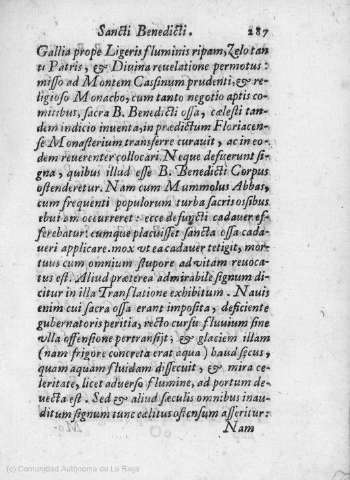 Sancti Benedicti. 287
Gallia prope Ligeris fluminis ripam, Zelo tan
ti Patris, & Divina revelatione permotus:
misso ad Montem Cassinum prudenti, & re-
ligioso Monacho, cum tanto negotio aptis co-
mitibus, sacra B. Benedicti ossa, cælesti tan-
dem indicio inventa, in prædictum Floriacen-
se Monasterium transferre curavit, ac in eo-
dem reverenter collocari. Neque defuerunt si-
gna, quibus illud esse B. Benedicti Corpus
ostenderetur. Nam cum Mummolus Abbas,
cum frequenti populorum turba sacris ossibus
obviam occurreret: ecce defuncti cadaver ef-
ferebatur: cumque placuisset sancta ossa cada-
veri applicare. mox vt ea cadaver tetigit, mor-
tuus cum omnium stupore ad vitam revoca-
tus est. Aliud præterea admirabile signum di-
citur in illa Translatione exhibitum. Navis
enim cui sacra ossa erant imposita, deficiente
gubernatoris peritia, recto cursu fluvium sine
vlla offensione pertransijt; & glaciem illam
(nam frigore concreta erat aqua) haud secus,
quam aquam fluidam dissecuit, & mira ce-
leritate, licet adverso flumine, ad portum de-
vecta est. Sed & aliud sæculis omnibus inau-
ditum signum tunc cælitus ostensum asseritur:
Nam
(c) Comunidad Autónoma de La Rioja